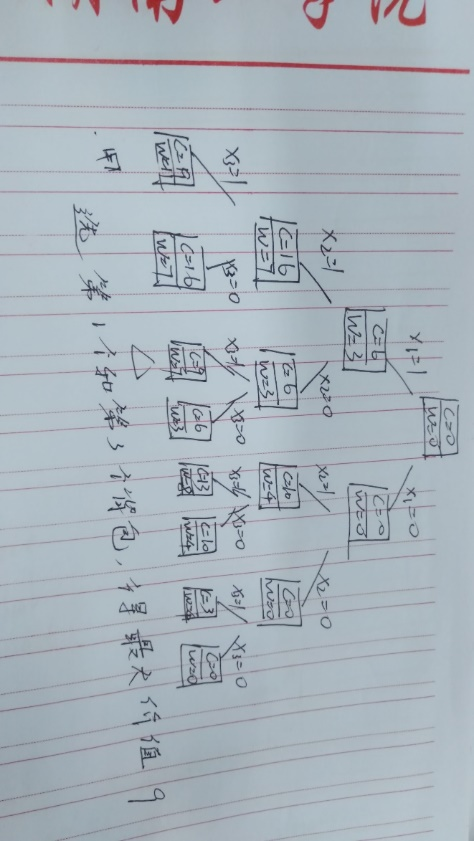 学院
C=0
W=0
X₁=1
X₁=0
C=6
W=3
C=0
W=0
X₂=1
X₂=0
X₂=1
X₂=0
C=16
W=7
C=6
W=3
C=10
W=4
C=0
W=0
X₃=1
X₃=0
X₃=1
X₃=0
X₃=1
X₃=0
X₃=1
X₃=0
C=16
W=7
C=9
C=6
W=3
C=13
C=10
W=4
C=3
C=0
W=0
选 第1个和第3个背包,才是最大价值9